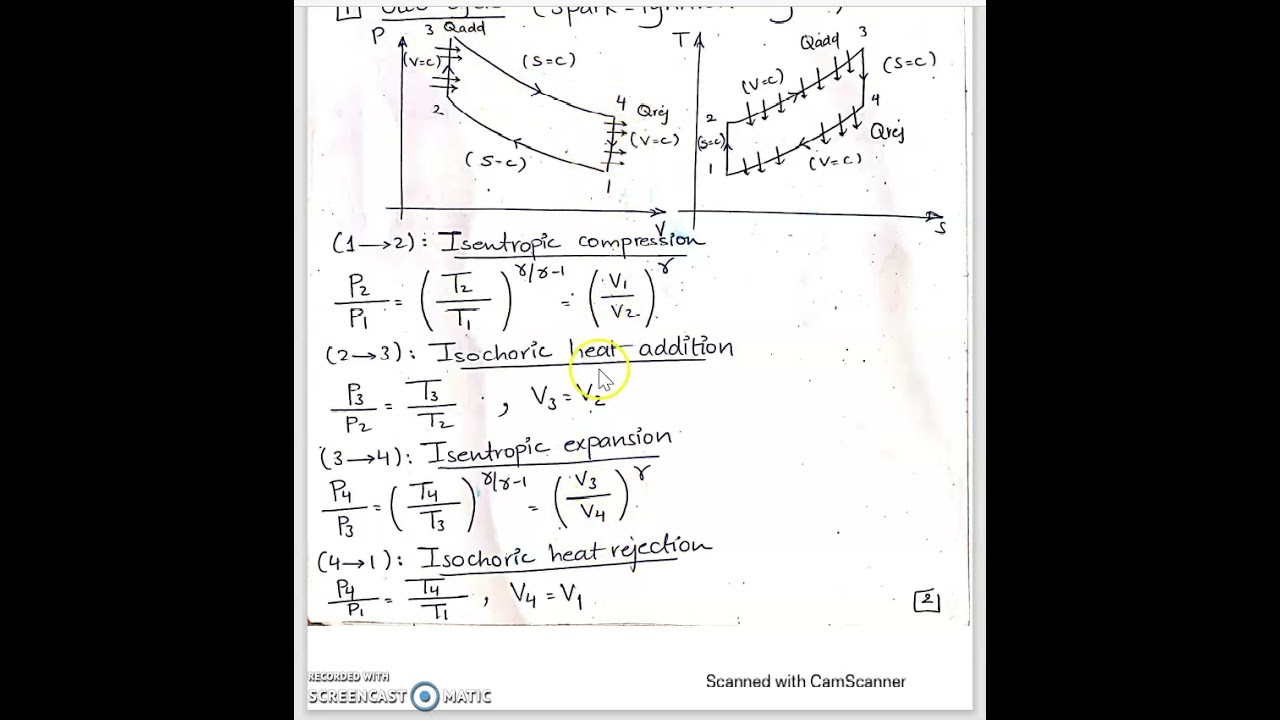 1 Otto cycle (Spark-ignition engine)
P 3 Qadd
(V=C)
(S=C)
2
4 Qrej
(V=C)
(S=C)
1
V
T
Qadd 3
(V=C)
(S=C)
2
4
(S=C)
Qrej
1
(V=C)
S
(1→2): Isentropic compression
P2/P1 = (T2/T1)^γ/γ-1 = (V1/V2)^γ
(2→3): Isochoric heat addition
P3/P2 = T3/T2 , V3 = V2
(3→4): Isentropic expansion
P4/P3 = (T4/T3)^γ/γ-1 = (V3/V4)^γ
(4→1): Isochoric heat rejection
P4/P1 = T4/T1 , V4 = V1
2
RECORDED WITH
SCREENCAST MATIC
Scanned with CamScanner